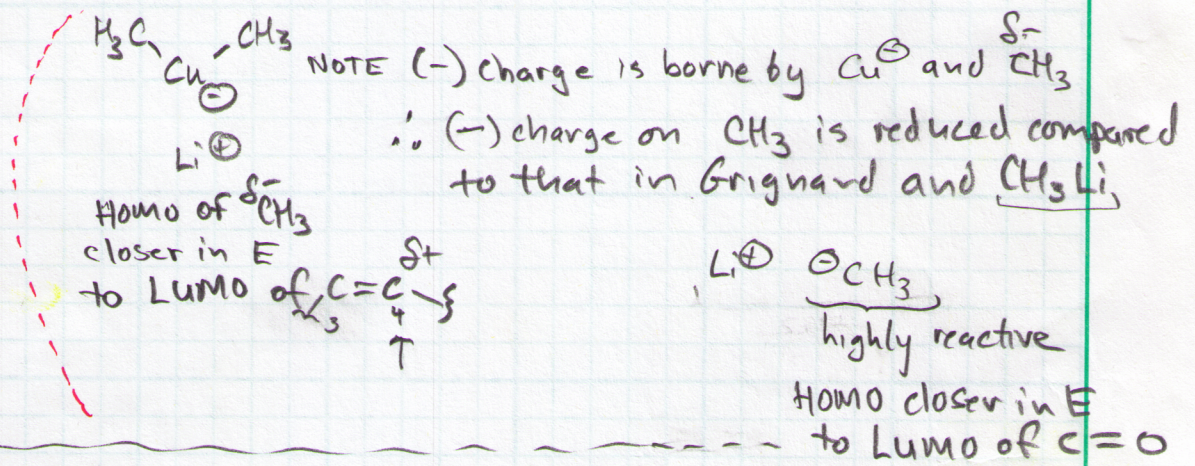 H₃C CH₃
Cu ⊖
Li⊕
NOTE (-) charge is borne by Cu⊖ and δ-CH₃
∴ (-) charge on CH₃ is reduced compared
to that in Grignard and CH₃Li
HOMO of δ-CH₃
closer in E
to LUMO of C=C δ+
3 4
↑
Li⊕ ⊖CH₃
highly reactive
HOMO closer in E
to LUMO of C=O